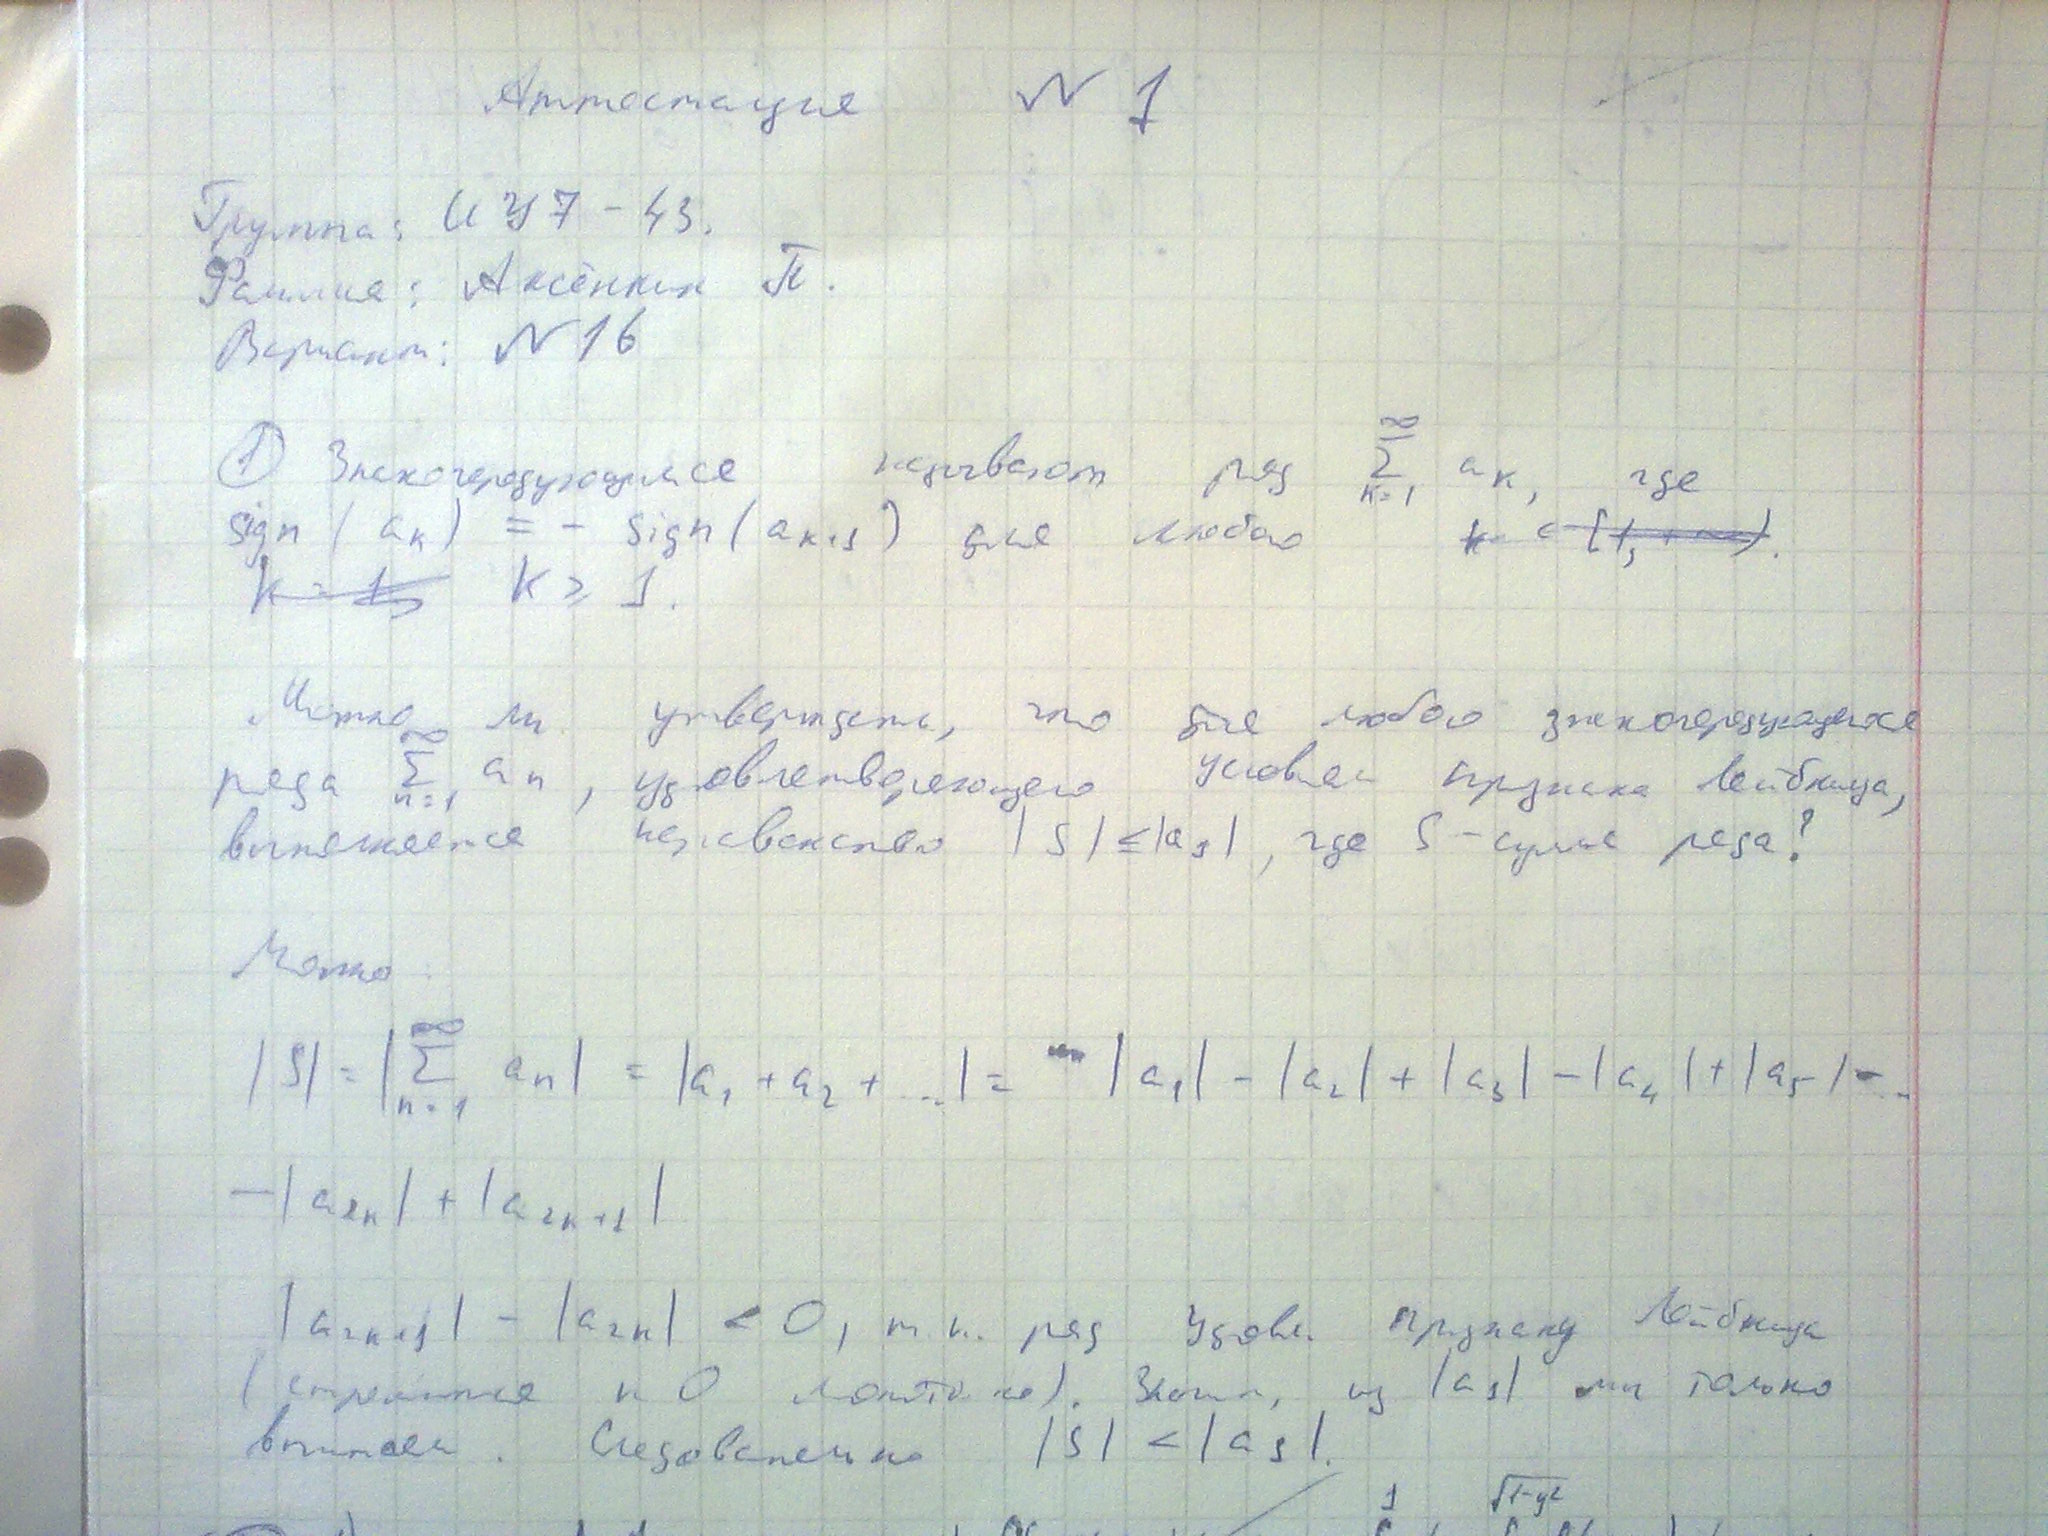 Аттестация № 1
Группа: ИУ7-43.
Фамилия: Аксёнкин П.
Вариант: №16
① Знакочередующимся называют ряд \sum_{k=1}^{∞} a_k, где
sign(a_k) = - sign(a_{k+1}) для любого
k ≥ 1.
Можно ли утверждать, что для любого знакочередующегося
ряда \sum_{n=1}^{∞} a_n, удовлетворяющего условиям признака Лейбница,
выполняется неравенство |S| ≤ |a_1|, где S - сумма ряда?
Можно.
|S| = |\sum_{n=1}^{∞} a_n| = |a_1 + a_2 + ...| = |a_1| - |a_2| + |a_3| - |a_4| + |a_5| - ...
- |a_{2k}| + |a_{2k+1}|
|a_{2k+1}| - |a_{2k}| < 0, т.к. ряд удовл. признаку Лейбница
(стремится к 0 монотонно). Значит, из |a_1| мы только
вычитаем. Следовательно |S| < |a_1|.